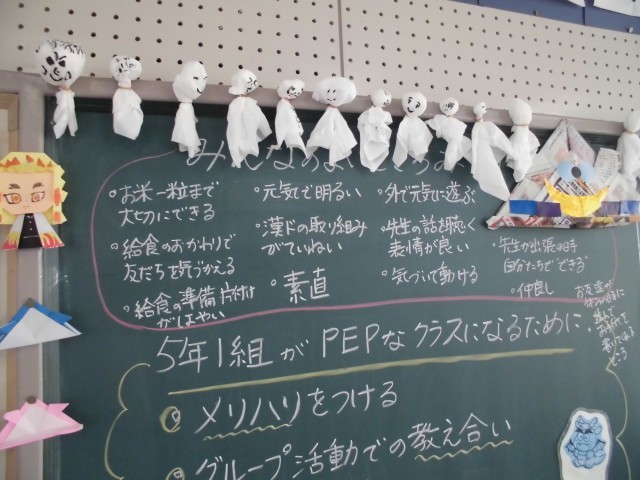 みんなのよいところ
・お米一粒まで
大切にできる
・給食のおかわりで
友だちを気づかえる
・給食の準備片付け
がはやい
・元気で明るい
・漢ドの取り組み
がていねい
・素直
・外で元気に遊ぶ
・先生の話を聴く
表情が良い
・気づいて動ける
・先生が出張の時
自分たちでできる
・仲良し
お友達が
5年1組がPEPなクラスになるために
メリハリをつける
グループ活動での教え合い